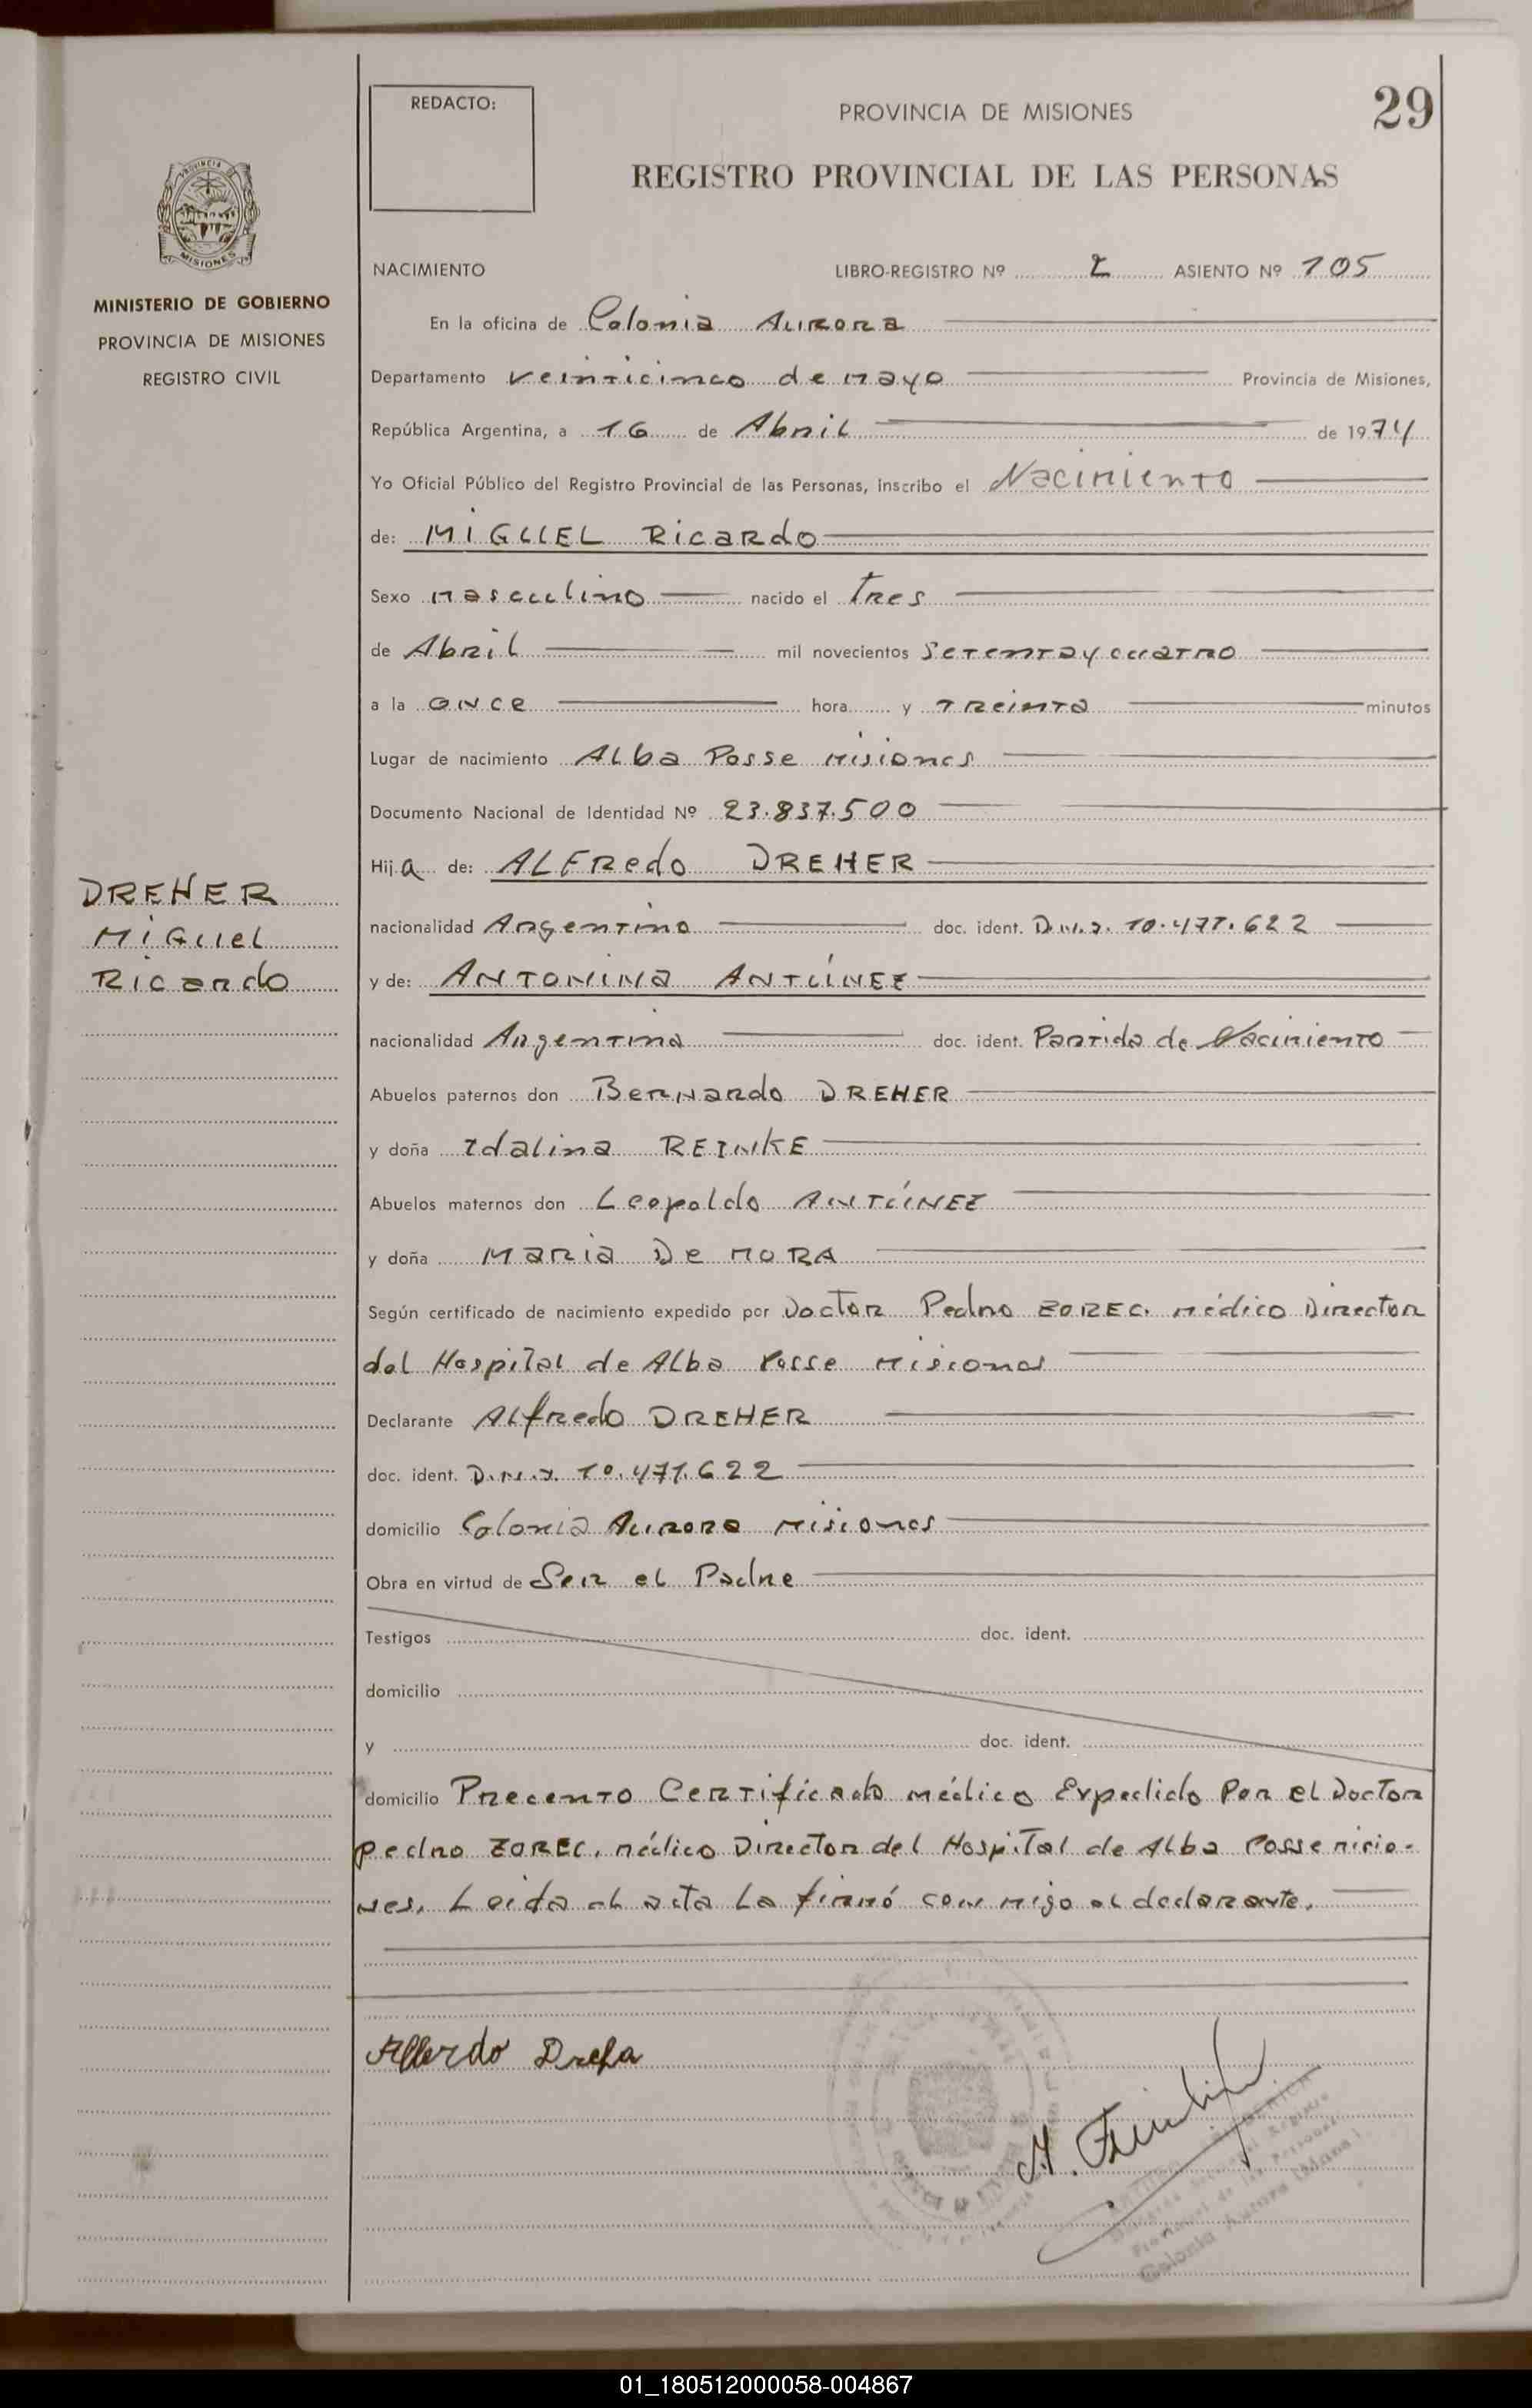 REDACTO:
PROVINCIA DE MISIONES
29
REGISTRO PROVINCIAL DE LAS PERSONAS
PROVINCIA
MISIONES
MINISTERIO DE GOBIERNO
PROVINCIA DE MISIONES
REGISTRO CIVIL
NACIMIENTO LIBRO-REGISTRO Nº 2 ASIENTO Nº 105
En la oficina de Colonia Aurora
Departamento veinticinco de mayo Provincia de Misiones,
República Argentina, a 16 de Abril de 1974
Yo Oficial Público del Registro Provincial de las Personas, inscribo el Nacimiento
de: MIGUEL Ricardo
Sexo masculino nacido el tres
de Abril mil novecientos setenta y cuatro
a la once hora y treinta minutos
Lugar de nacimiento Alba Posse Misiones
Documento Nacional de Identidad Nº 23.837.500
Hija de: ALFRedo DREHER
nacionalidad Argentina doc. ident. D.N.I. 10.471.622
y de: ANTONINA ANTÚNEZ
nacionalidad Argentina doc. ident. Partida de Nacimiento
Abuelos paternos don Bernardo DREHER
y doña Idalina REINKE
Abuelos maternos don Leopoldo ANTÚNEZ
y doña Maria De MORA
Según certificado de nacimiento expedido por Doctor Pedro ZOREC. médico Director
del Hospital de Alba Posse Misiones
Declarante Alfredo DREHER
doc. ident. D.N.I. 10.471.622
domicilio Colonia Aurora Misiones
Obra en virtud de Ser el Padre
Testigos doc. ident.
domicilio
y doc. ident.
domicilio Precento Certificado médico Expedido Por el Doctor
pedro ZOREC. médico Director del Hospital de Alba Posse misio-
nes. Leida el acta La firmó con migo el declarante.
DREHER
Miguel
Ricardo
Colonia Aurora
01_180512000058-004867